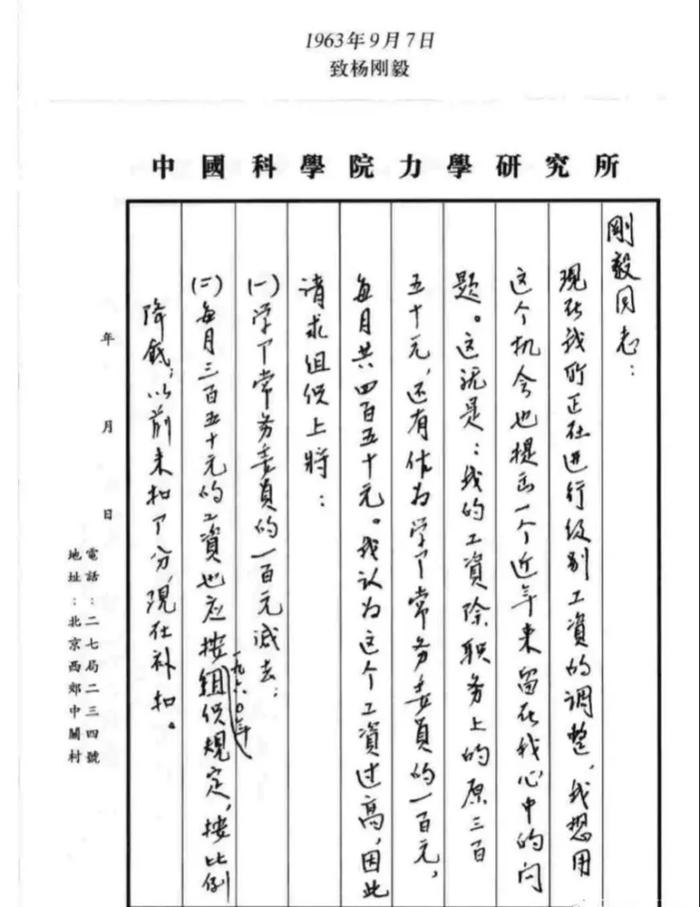 1963年9月7日
致杨刚毅
中國科學院力學研究所
剛毅同志：
现在我所正在进行级别工资的调整，我想用
这个机会也提出一个近年来留在我心中的问
题。这就是：我的工資除职务上的原三百
五十元，还有作为学卩常务委员的一百元，
每月共四百五十元。我认为这个工資过高，因此
请求组织上将：
(一)学卩常务委员的一百元减去；
(二)每月三百五十元的工資也应按一九六〇年组织规定，按比例
降低；以前未扣卩分，现在补扣。
年 月 日
電話：二七局二三四號
地址：北京西郊中關村